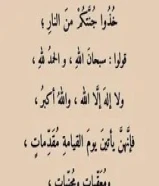 خُذُوا جُنَّتَكُمْ مِنَ النارِ ؛
قولوا : سبحانَ اللهِ ، و الحمدُ للهِ ،
ولا إلهَ إلَّا الله ، واللهُ أكبرُ ،
فإنَّهنَّ يأتينَ يومَ القيامةِ مُقَدِّماتٍ ،
ومُعَقِّباتٍ ومُجَنِّباتٍ ،